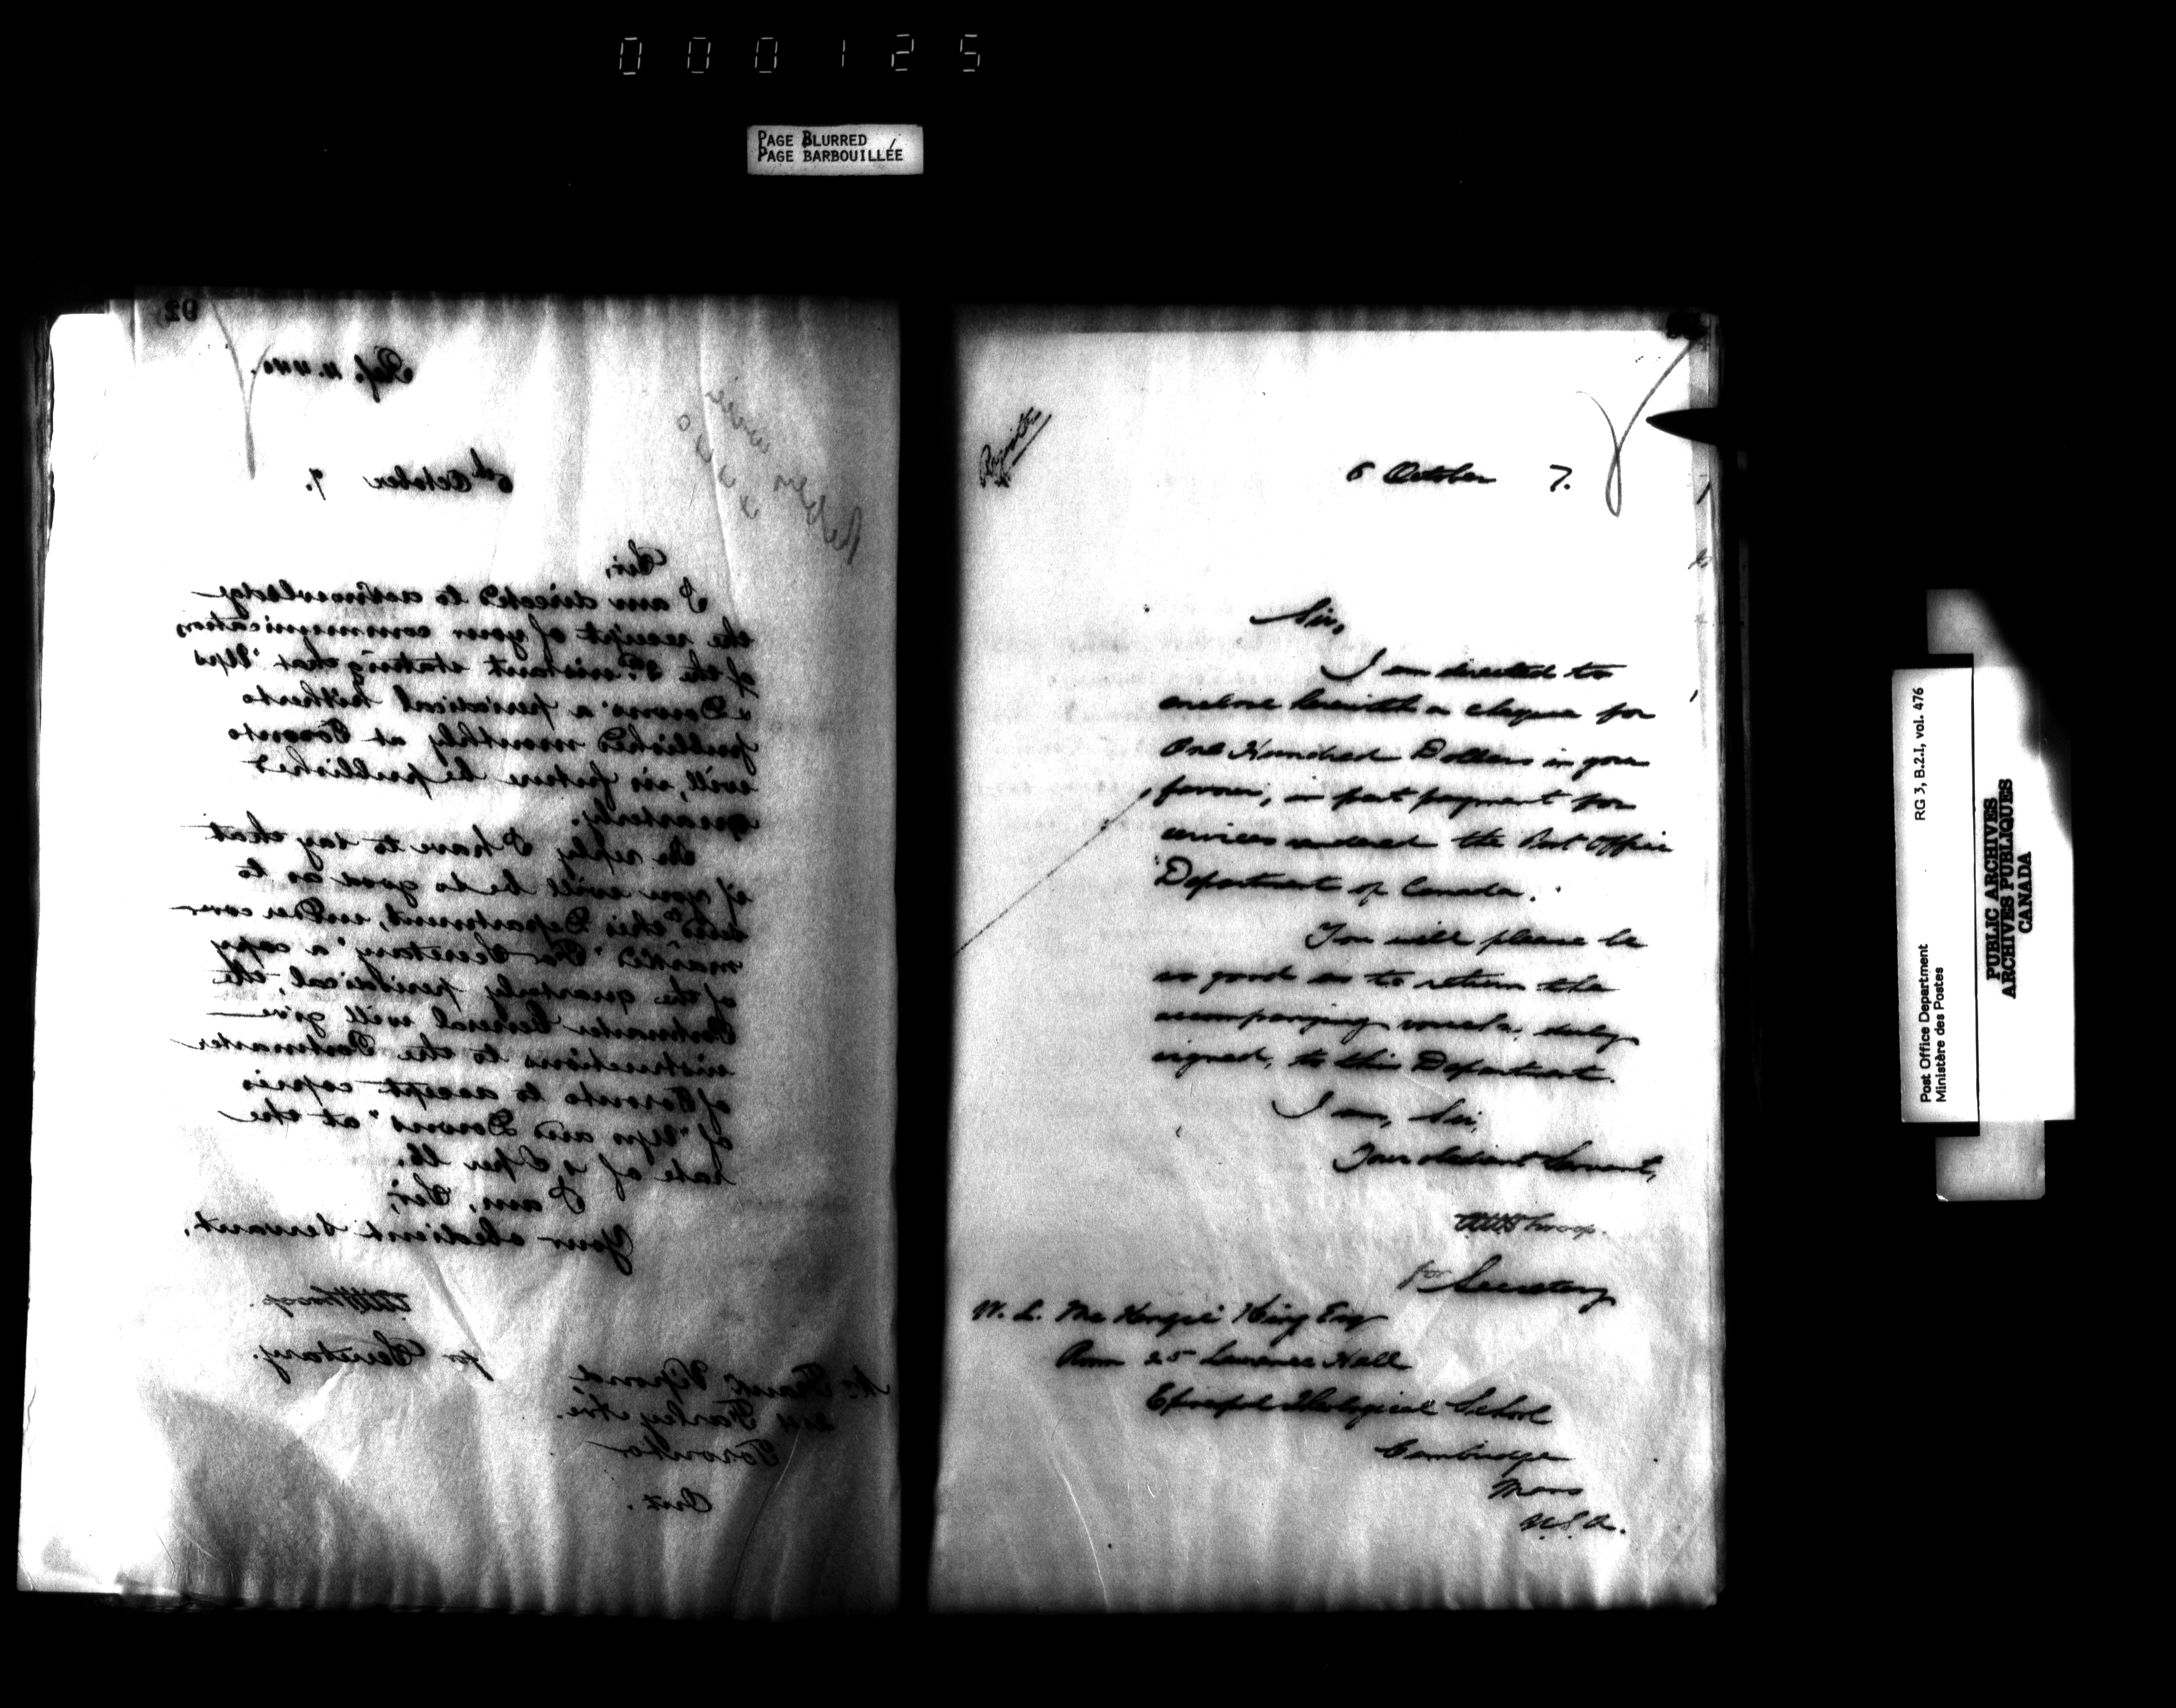 000125
PAGE BLURRED
PAGE BARBOUILLÉE
92
Ref. U. 440.
6th October 7.
Sir,
I am directed to acknowledge
the receipt of your communication
of the 3rd instant stating that "Ups
& Downs" a periodical hitherto
published monthly at Toronto
will, in future be published
quarterly.
In reply I have to say that
if you will be so good as to
send this Department, under cover
marked "For Secretary" a copy
of the quarterly periodical, the
Postmaster General will give
instructions to the Postmaster
of Toronto to accept copies
of "Ups and Downs" at the
rate of 1¢ per lb.
I am, Sir,
Your obedient servant,
for Secretary.
Mr Frank Vipond
214 Farley Ave.
Toronto
Ont.
Register
6 October 7.
Sir,
I am directed to
enclose herewith a cheque for
One Hundred Dollars in your
favour, in part payment for
services rendered the Post Office
Department of Canada.
You will please be
so good as to return the
accompanying voucher, duly
signed, to this Department.
I am, Sir,
Your obedient Servant,
for Secretary
W. L. McKenzie King Esq
Room 25 Lawrence Hall
Episcopal Theological School
Cambridge
Mass
U.S.A.
RG 3, B.2.1, vol. 476
Post Office Department
Ministère des Postes
PUBLIC ARCHIVES
ARCHIVES PUBLIQUES
CANADA